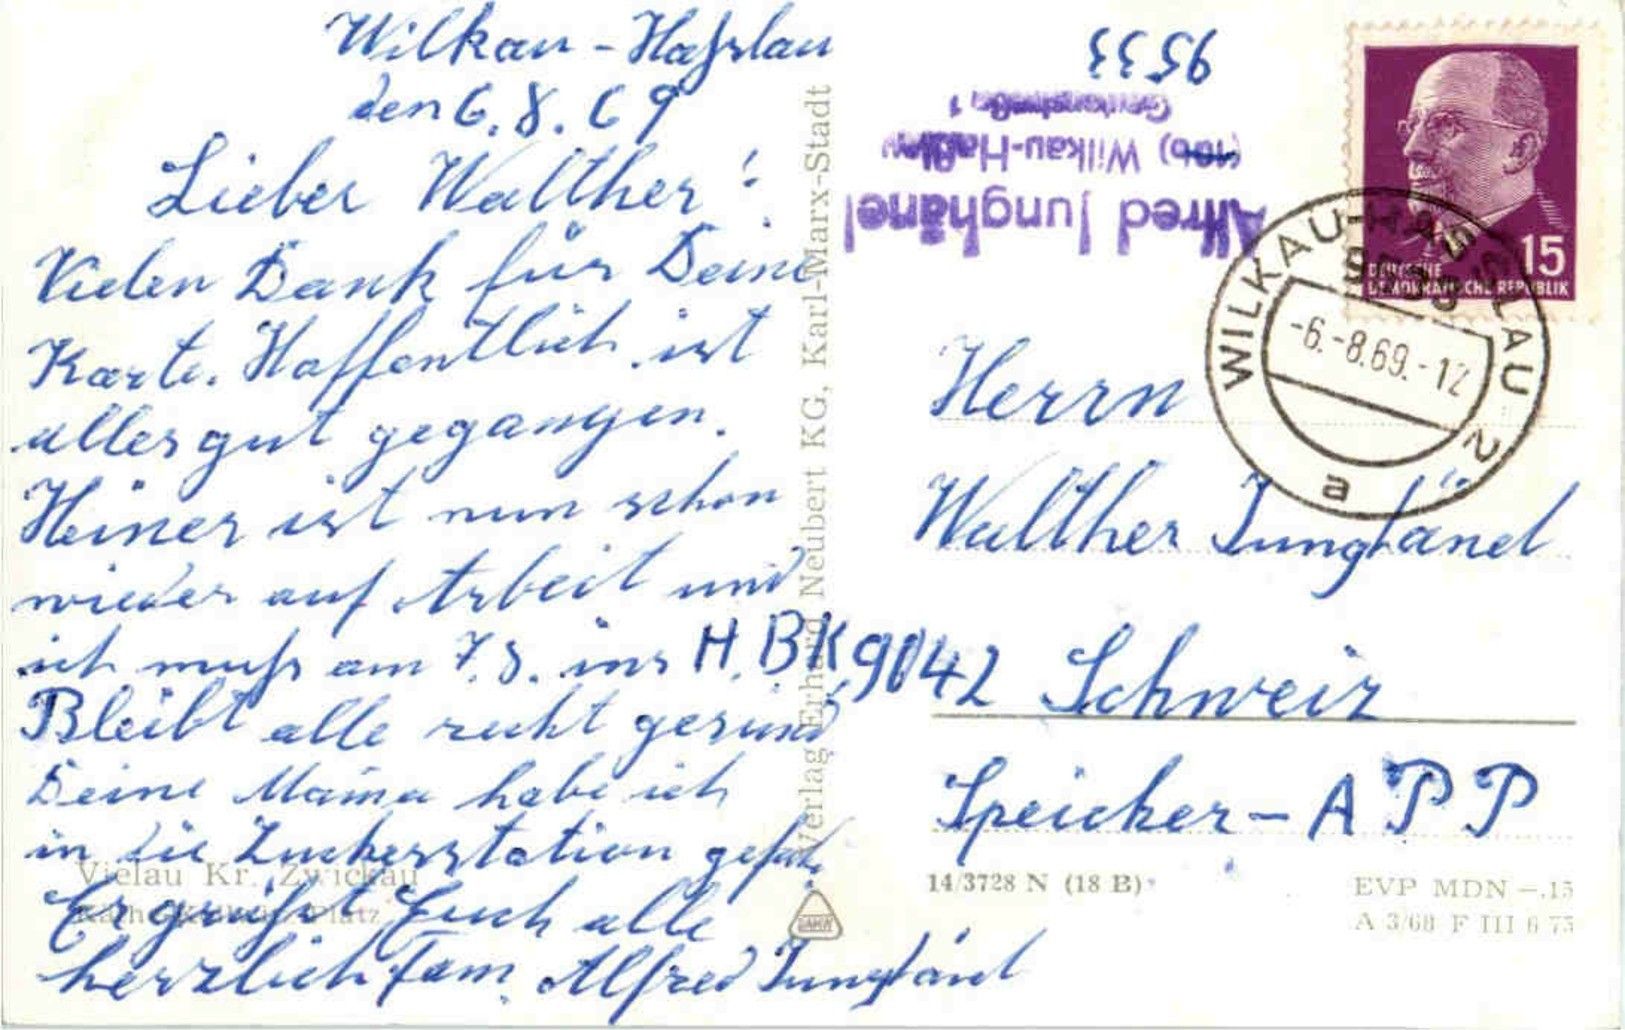 Wilkau-Haßlau
den 6.8.69
Lieber Walther!
Vielen Dank für Deine
Karte. Hoffentlich ist
alles gut gegangen.
Heiner ist nun schon
wieder auf Arbeit und
ich muß am 7.8. ins H.B.K.
Bleibt alle recht gesund
Deine Mama habe ich
in die Zuckerstation
Es grüßt Euch alle
herzlich Fam. Alfred Junghänel
Vielau Kr. Zwickau
Platz
Verlag Erhard Neubert KG, Karl-Marx-Stadt
Alfred Junghänel
(10b) Wilkau-Haßlau
1
9533
15
DEUTSCHE
DEMOKRATISCHE REPUBLIK
WILKAU-HASSLAU 2
9533
-6.-8.69.-12
a
Herrn
Walther Junghänel
9042 Schweiz
Speicher-APP
14/3728 N (18 B)
EVP MDN -.15
A 3/68 F III 6 75